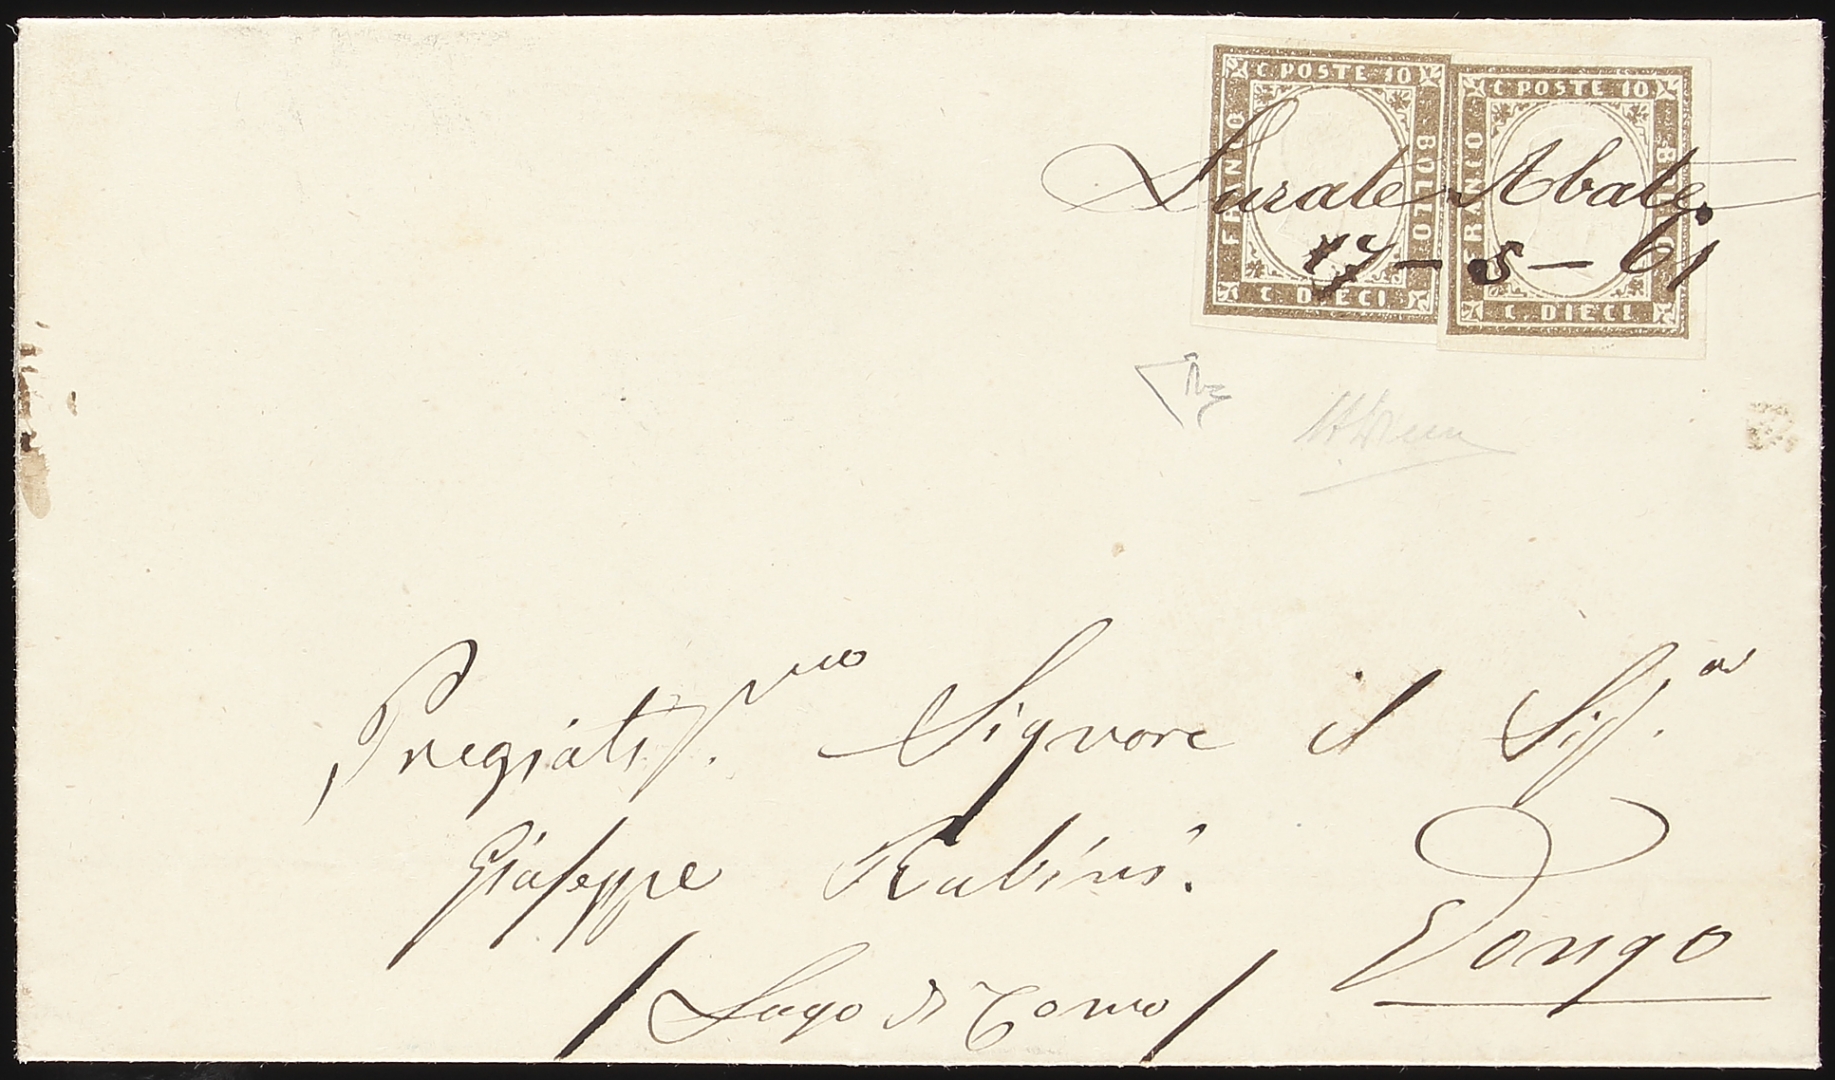 C. POSTE 10
FRANCO
BOLLO
C. DIECI
C. POSTE 10
FRANCO
BOLLO
C. DIECI
Lurate Abate.
17-5-61
Pregiatiss.mo Signore il Sig.or
Giuseppe Rubini.
/ Lago di Como /
Dongo